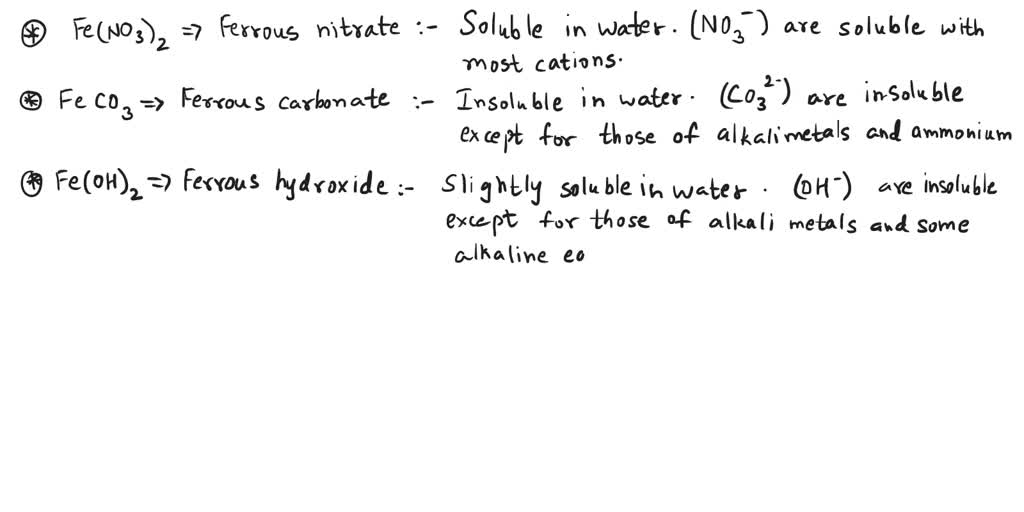 ⊛ Fe(NO₃)₂ ⇒ Ferrous nitrate :- Soluble in water. (NO₃⁻) are soluble with
most cations.
⊛ FeCO₃ ⇒ Ferrous carbonate :- Insoluble in water. (CO₃²⁻) are insoluble
except for those of alkalimetals and ammonium
⊛ Fe(OH)₂ ⇒ Ferrous hydroxide :- Slightly soluble in water. (OH⁻) are insoluble
except for those of alkali metals and some
alkaline ea